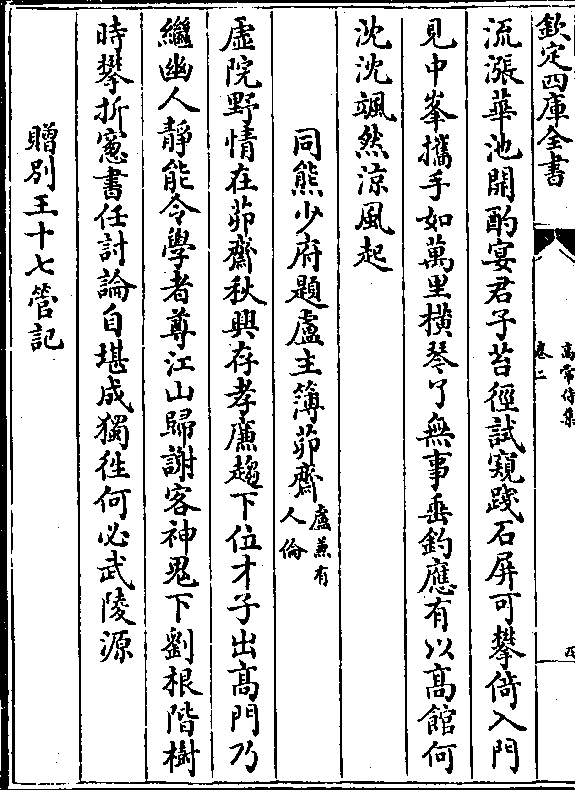 欽定四庫全書
高常侍集
卷二
流漲華池開酌宴君子苔徑試窺踐石屏可攀倚入門
見中峯攜手如萬里橫琴了無事垂釣應有以髙館何
沈沈颯然涼風起
同熊少府題盧主簿茆齋盧兼有人倫
虛院野情在茆齋秋興存孝亷趨下位才子出髙門乃
繼幽人靜能令學者尊江山歸謝客神鬼下劉根階樹
時攀折窻書任討論自堪成獨徃何必武陵源
贈別王十七管記